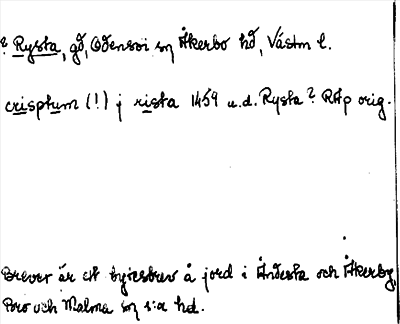 ? Rysta, gd, Odensvi sn Åkerbo hd, Västm l.
crisptum (!) j rista 1459 u.d. Rysta? RAp orig.
Brevet är ett bytesbrev å jord i Åndesta och Åkerby,
Boro och Malma sn s:a hd.